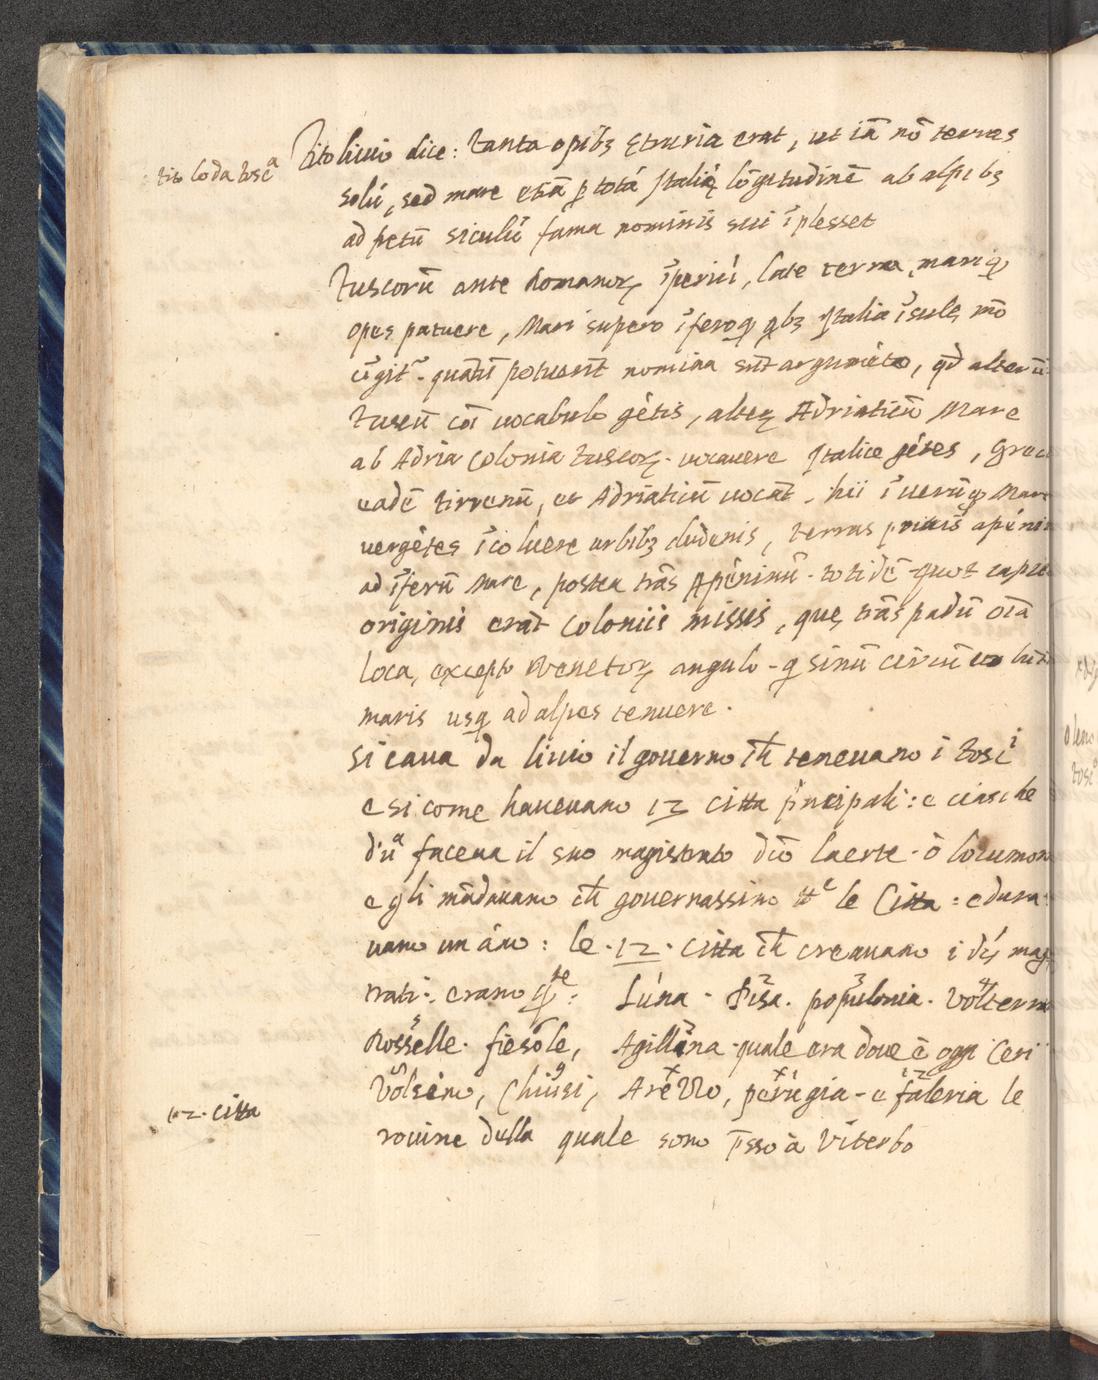 tit° loda tosca
Tito livio dice: tanta opibȝ ȩtruria erat, ut iā nō terras
solū, sed mare etiā ꝑ totā Italiȩ lōgitudinē ab alpibȝ
ad fretū siculū fama nominis sui īplesset
Tuscorū ante Romanoꝝ īperiū, late terra, mariqꝫ
opes patuere, Mari supero īferoqꝫ qbȝ Italia īsulȩ mō
cīgit{ur} · quātū potuerīt nomina sūt argumēto, qđ alterū
tuscū cōi uocabulo gētis, alteꝝ Adriaticū Mare
ab Adria colonia tuscoꝝ · uocauere Italice gētes, Greci
eadē tirrenū, et Adriaticū uocāt · hii ī utrūqꝫ Mare
uergētes īcoluere urbibȝ duđenis, terras prius apēni
ad īferū Mare, postea trās Apēninū · totidē · quot capi
originis erāt coloniis missis, quȩ trās padū oīa
loca, excepto Venetoꝝ angulo · q sinū circū
maris usqꝫ ad alpes tenuere ·
Si caua da liuio il gouerno cħ teneuano i tosci
e si come haueuano 12 citta pncipali: e ciasche
d'ūa faceua il suo magistrato dcō laerte · ò locumon
e gli mādauano cħ gouernassino tte le Citta: e dura
uano un āno: le · 12 · citta cħ creauano i dī mag
trati: erano qste: Lúna · Pisa 2 · populonia 3 · volterra 4
Rosselle 5 · fiesole, Agillina · quale era doue è oggi Ceri
12 · citta
Volséno, Chiusi 9, Arezzo x, perugia x1 · e faleria 12 le
rouine della quale sono p̄sso à Viterbo